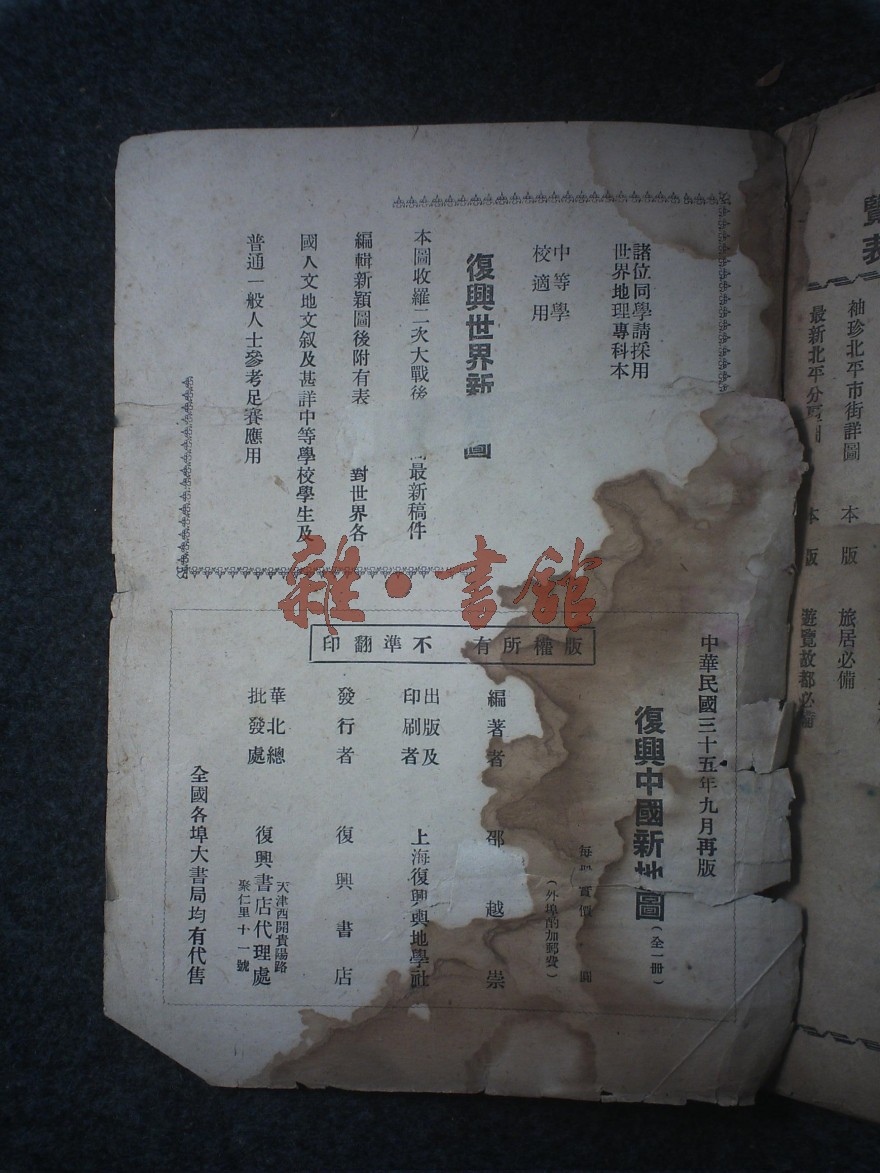 諸位同學請採用
世界地理專科本
中等學
校適用
復興世界新 圖
本圖收羅二次大戰後 最新稿件
編輯新穎圖後附有表 對世界各
國人文地文叙及甚詳中等學校學生及
普通一般人士參考足賽應用
版權所有 不準翻印
中華民國三十五年九月再版
復興中國新地圖(全一冊)
每 實價 圓
(外埠酌加郵費)
編著者 邵越崇
出版及
印刷者 上海復興輿地學社
發行者 復興書店
華北總
批發處 復興書店代理處
天津西開貴陽路
聚仁里十一號
全國各埠大書局均有代售
覽表
袖珍北平市街詳圖 本版 旅居必備
最新北平分 圖 本版 遊覽故都必備
雜·書館